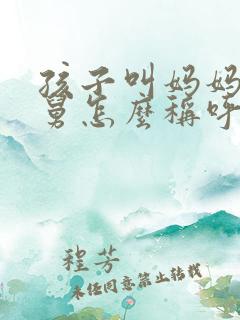 孩子叫妈妈
舅怎麼稱呼
程芳
未任同意禁止转载